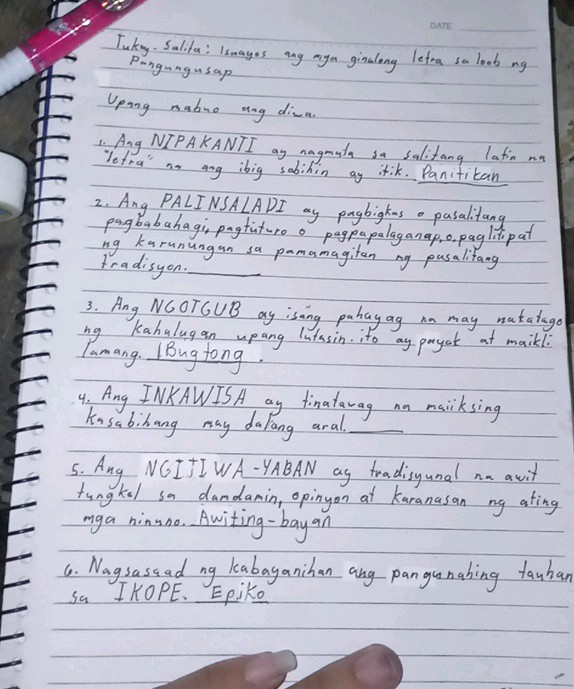 DATE
Tukoy-Salita: Isaayos ang mga ginulong letra sa loob ng
Pangungusap
Upang mabuo ang diwa.
1. Ang NIPAKANTI ay nagmula sa salitang latin na
"letra" na ang ibig sabihin ay itik. Panitikan
2. Ang PALINSALADI ay pagbigkas o pasalitang
pagbabahagi, pagtuturo o pagpapalaganap, o paglilipat
ng karunungan sa pamamagitan ng pasalitang
tradisyon.
3. Ang NGOTGUB ay isang pahayag na may natatago
ng kahulugan upang lutasin. ito ay payak at maikli
lamang. Bugtong.
4. Ang INKAWISA ay tinatavag na maiiksing
kasabihang may dalang aral.
5. Ang NGITIWA-YABAN ay tradisyunal na awit
tungkol sa damdamin, opinyon at karanasan ng ating
mga ninuno. Awiting-bayan
6. Nagsasaad ng kabayanihan ang pangunahing tauhan
sa IKOPE. Epiko